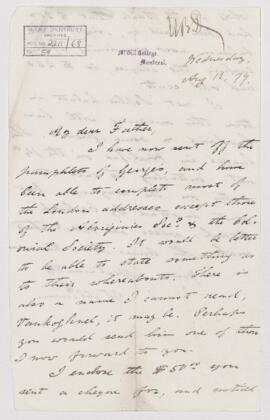 McGill College,
Montreal.
Wednesday,
Aug 13, 79.
My dear Father,
I have now sent off the
pamphlets of George's, and have
been able to complete most of
the London addresses except those
of the Aborigines Socy. & the Col-
onial Society. It would be better
to be able to state something as
to their whereabouts. There is
also a name I cannot read,
it may be. Perhaps
you would send him one of those
I now forward to you.
I enclose the $50.00 you
sent a cheque for, and